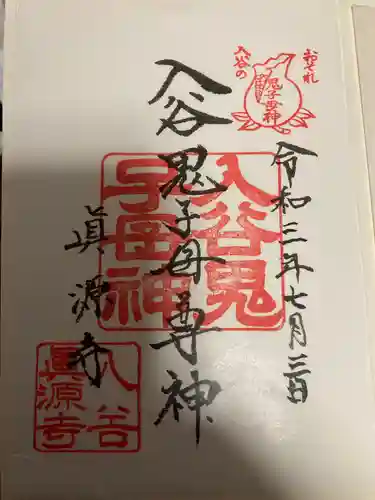 おそれ
入谷の
鬼子母神
令和三年七月三日
入谷鬼子母尊神
入谷鬼
子母神
眞源寺
入谷
眞源寺